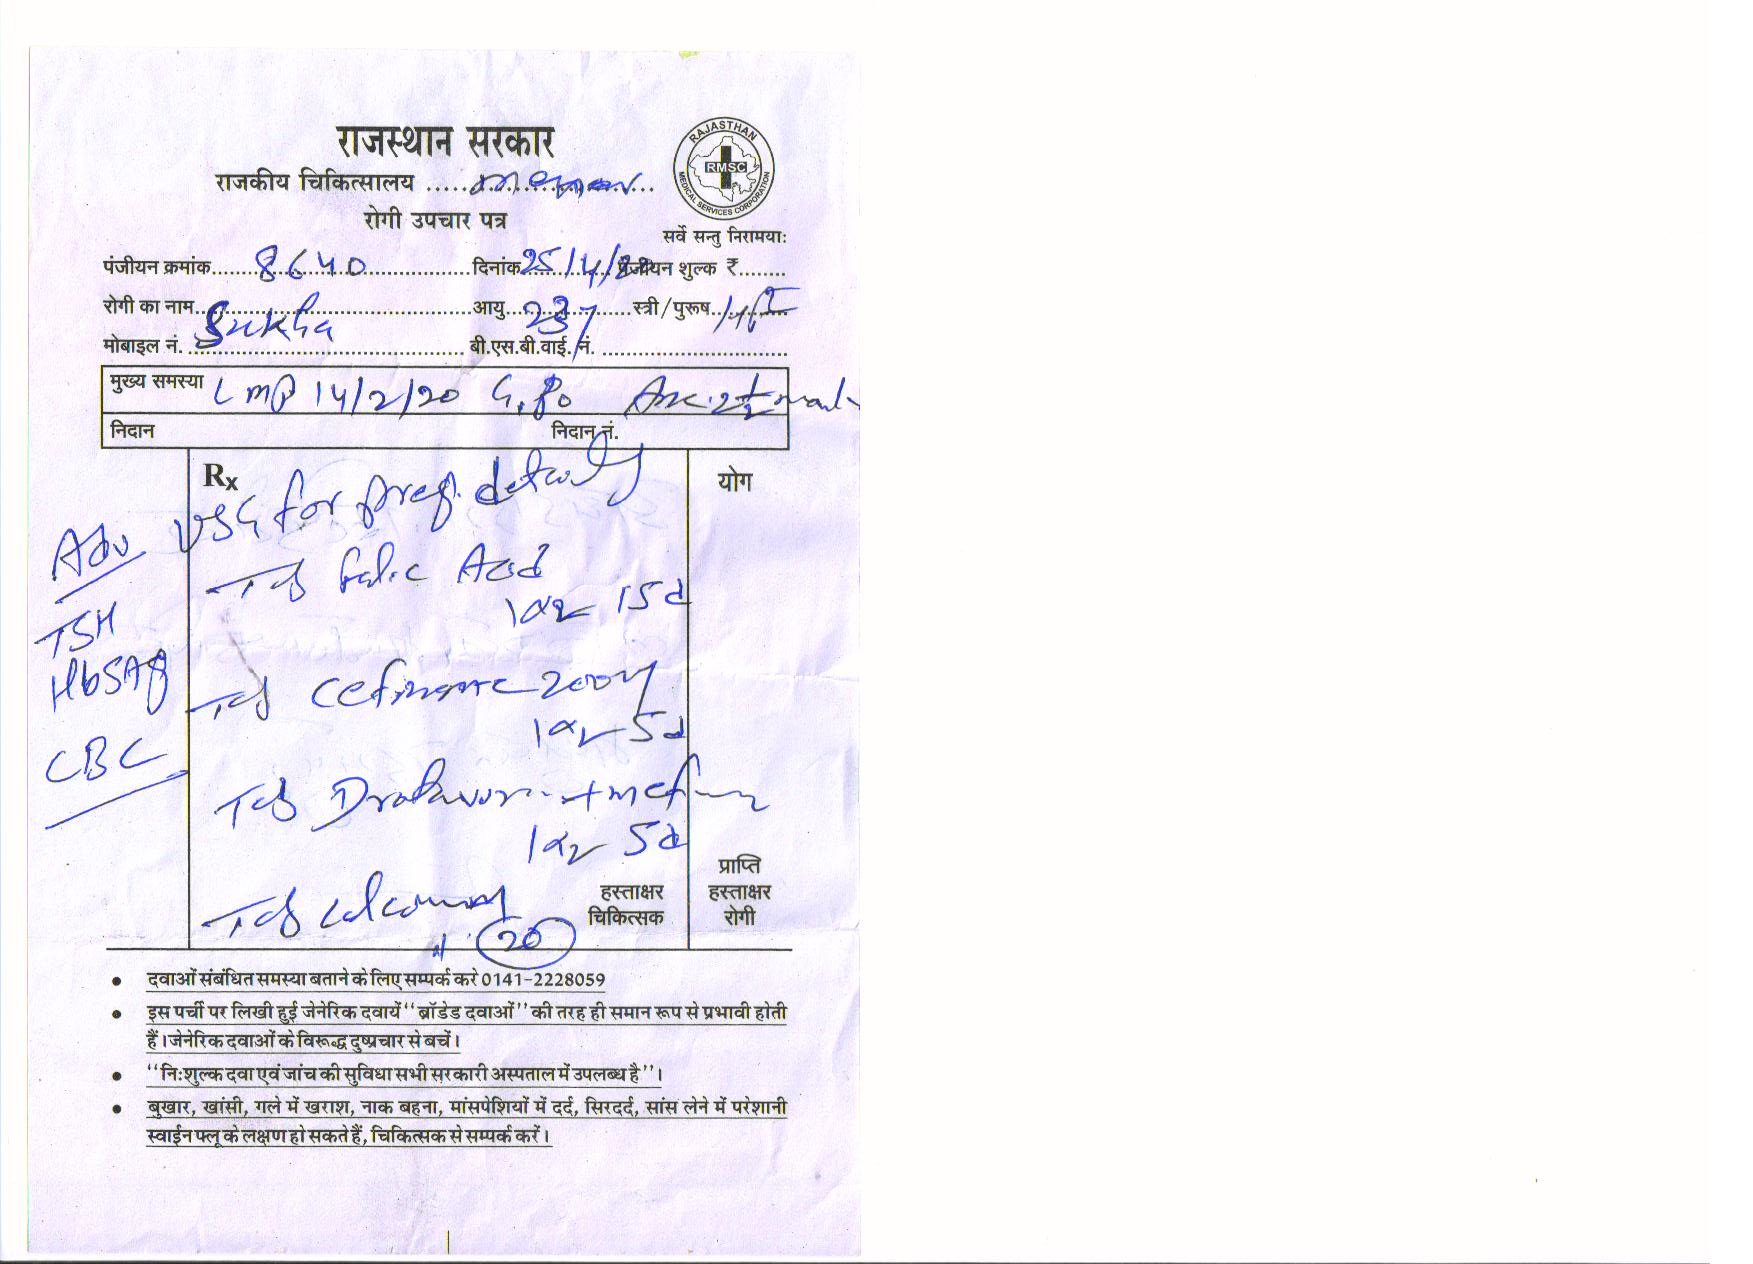 राजस्थान सरकार
राजकीय चिकित्सालय ..............................
रोगी उपचार पत्र
RAJASTHAN
RMSC
MEDICAL SERVICES CORPORATION
सर्वे सन्तु निरामयाः
पंजीयन क्रमांक 8640 दिनांक 25/4/20 पंजीयन शुल्क ₹........
रोगी का नाम Sukha आयु 23 स्त्री/पुरूष
मोबाइल नं. ............ बी.एस.बी.वाई. नं. ............
मुख्य समस्या LMP 14/2/20 G1P0 2½
निदान निदान नं.
Rx योग
Adv USG for preg.
Tab folic Acid
15d
TSH
HbSAg
Tab 200mg
5d
CBC
Tab
5d
Tab
20
हस्ताक्षर चिकित्सक
प्राप्ति हस्ताक्षर रोगी
• दवाओं संबंधित समस्या बताने के लिए सम्पर्क करे 0141-2228059
• इस पर्ची पर लिखी हुई जेनेरिक दवायें "ब्रॉडेड दवाओं" की तरह ही समान रूप से प्रभावी होती
हैं। जेनेरिक दवाओं के विरूद्ध दुष्प्रचार से बचें।
• "निःशुल्क दवा एवं जांच की सुविधा सभी सरकारी अस्पताल में उपलब्ध है"।
• बुखार, खांसी, गले में खराश, नाक बहना, मांसपेशियों में दर्द, सिरदर्द, सांस लेने में परेशानी
स्वाईन फ्लू के लक्षण हो सकते हैं, चिकित्सक से सम्पर्क करें।